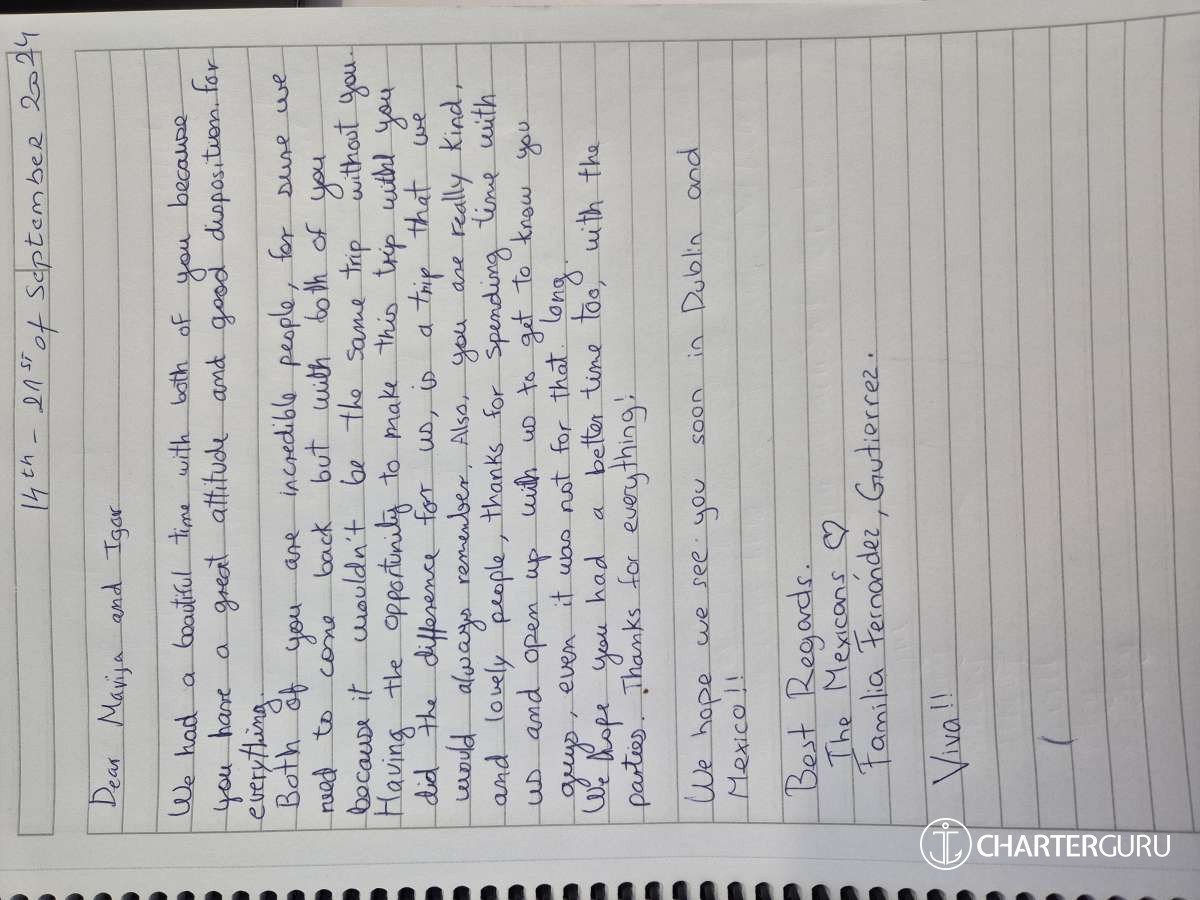 14th - 21st of September 2024
Dear Marija and Igor
We had a beautiful time with both of you because
you have a great attitude and good disposition for
everything.
Both of you are incredible people, for sure we
need to come back but with both of you
because it wouldn't be the same trip without you.
Having the opportunity to make this trip with you
did the difference for us, is a trip that we
would always remember. Also, you are really kind,
and lovely people, thanks for spending time with
us and open up with us to get to know you
guys, even it was not for that long.
We hope you had a better time too, with the
parties. Thanks for everything!
We hope we see you soon in Dublin and
Mexico!!
Best Regards.
The Mexicans ♡
Familia Fernández, Gutierrez.
Viva!!
CHARTERGURU